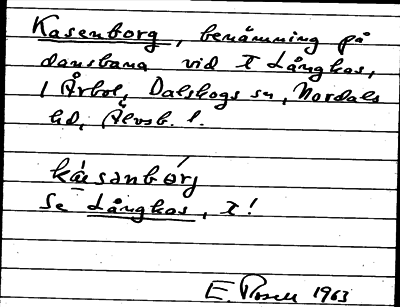 Kasenborg, benämning på
dansbana vid I Långkas,
1 Årbol, Dalskogs sn, Nordals
hd, Älvsb. l.
kásenbórj
Se Långkas, I!
E. Rosell 1963